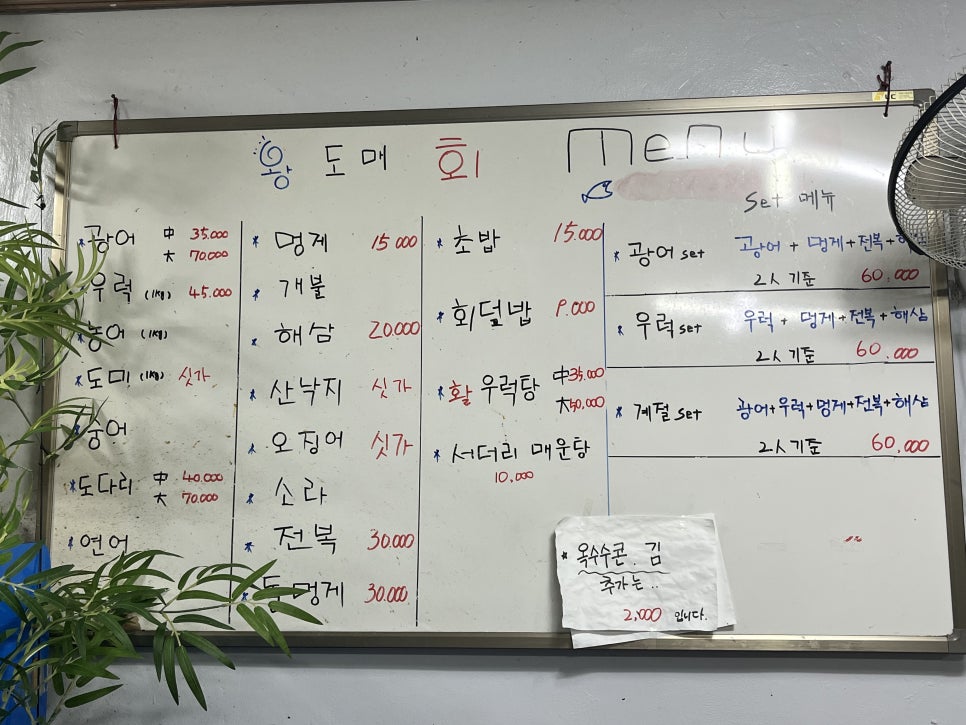 왕 도매 회 menu
* 광어 中 35.000
大 70.000
우럭 (1kg) 45.000
농어 (1kg)
* 도미 (1kg) 싯가
* 숭어
* 도다리 中 40.000
大 70.000
* 연어
* 멍게 15.000
* 개불
* 해삼 20.000
* 산낙지 싯가
* 오징어 싯가
* 소라
* 전복 30.000
* 돌멍게 30.000
* 초밥 15.000
* 회덮밥 9.000
* 활 우럭탕 中 35.000
大 50,000
* 서더리 매운탕
10,000
Set 메뉴
* 광어 set 광어 + 멍게 + 전복 +
2人 기준 60.000
* 우럭 set 우럭 + 멍게 + 전복 + 해삼
2人 기준 60.000
* 계절 set 광어 + 우럭 + 멍게 + 전복 + 해삼
2人 기준 60.000
* 옥수수콘. 김
추가는..
2,000 입니다.